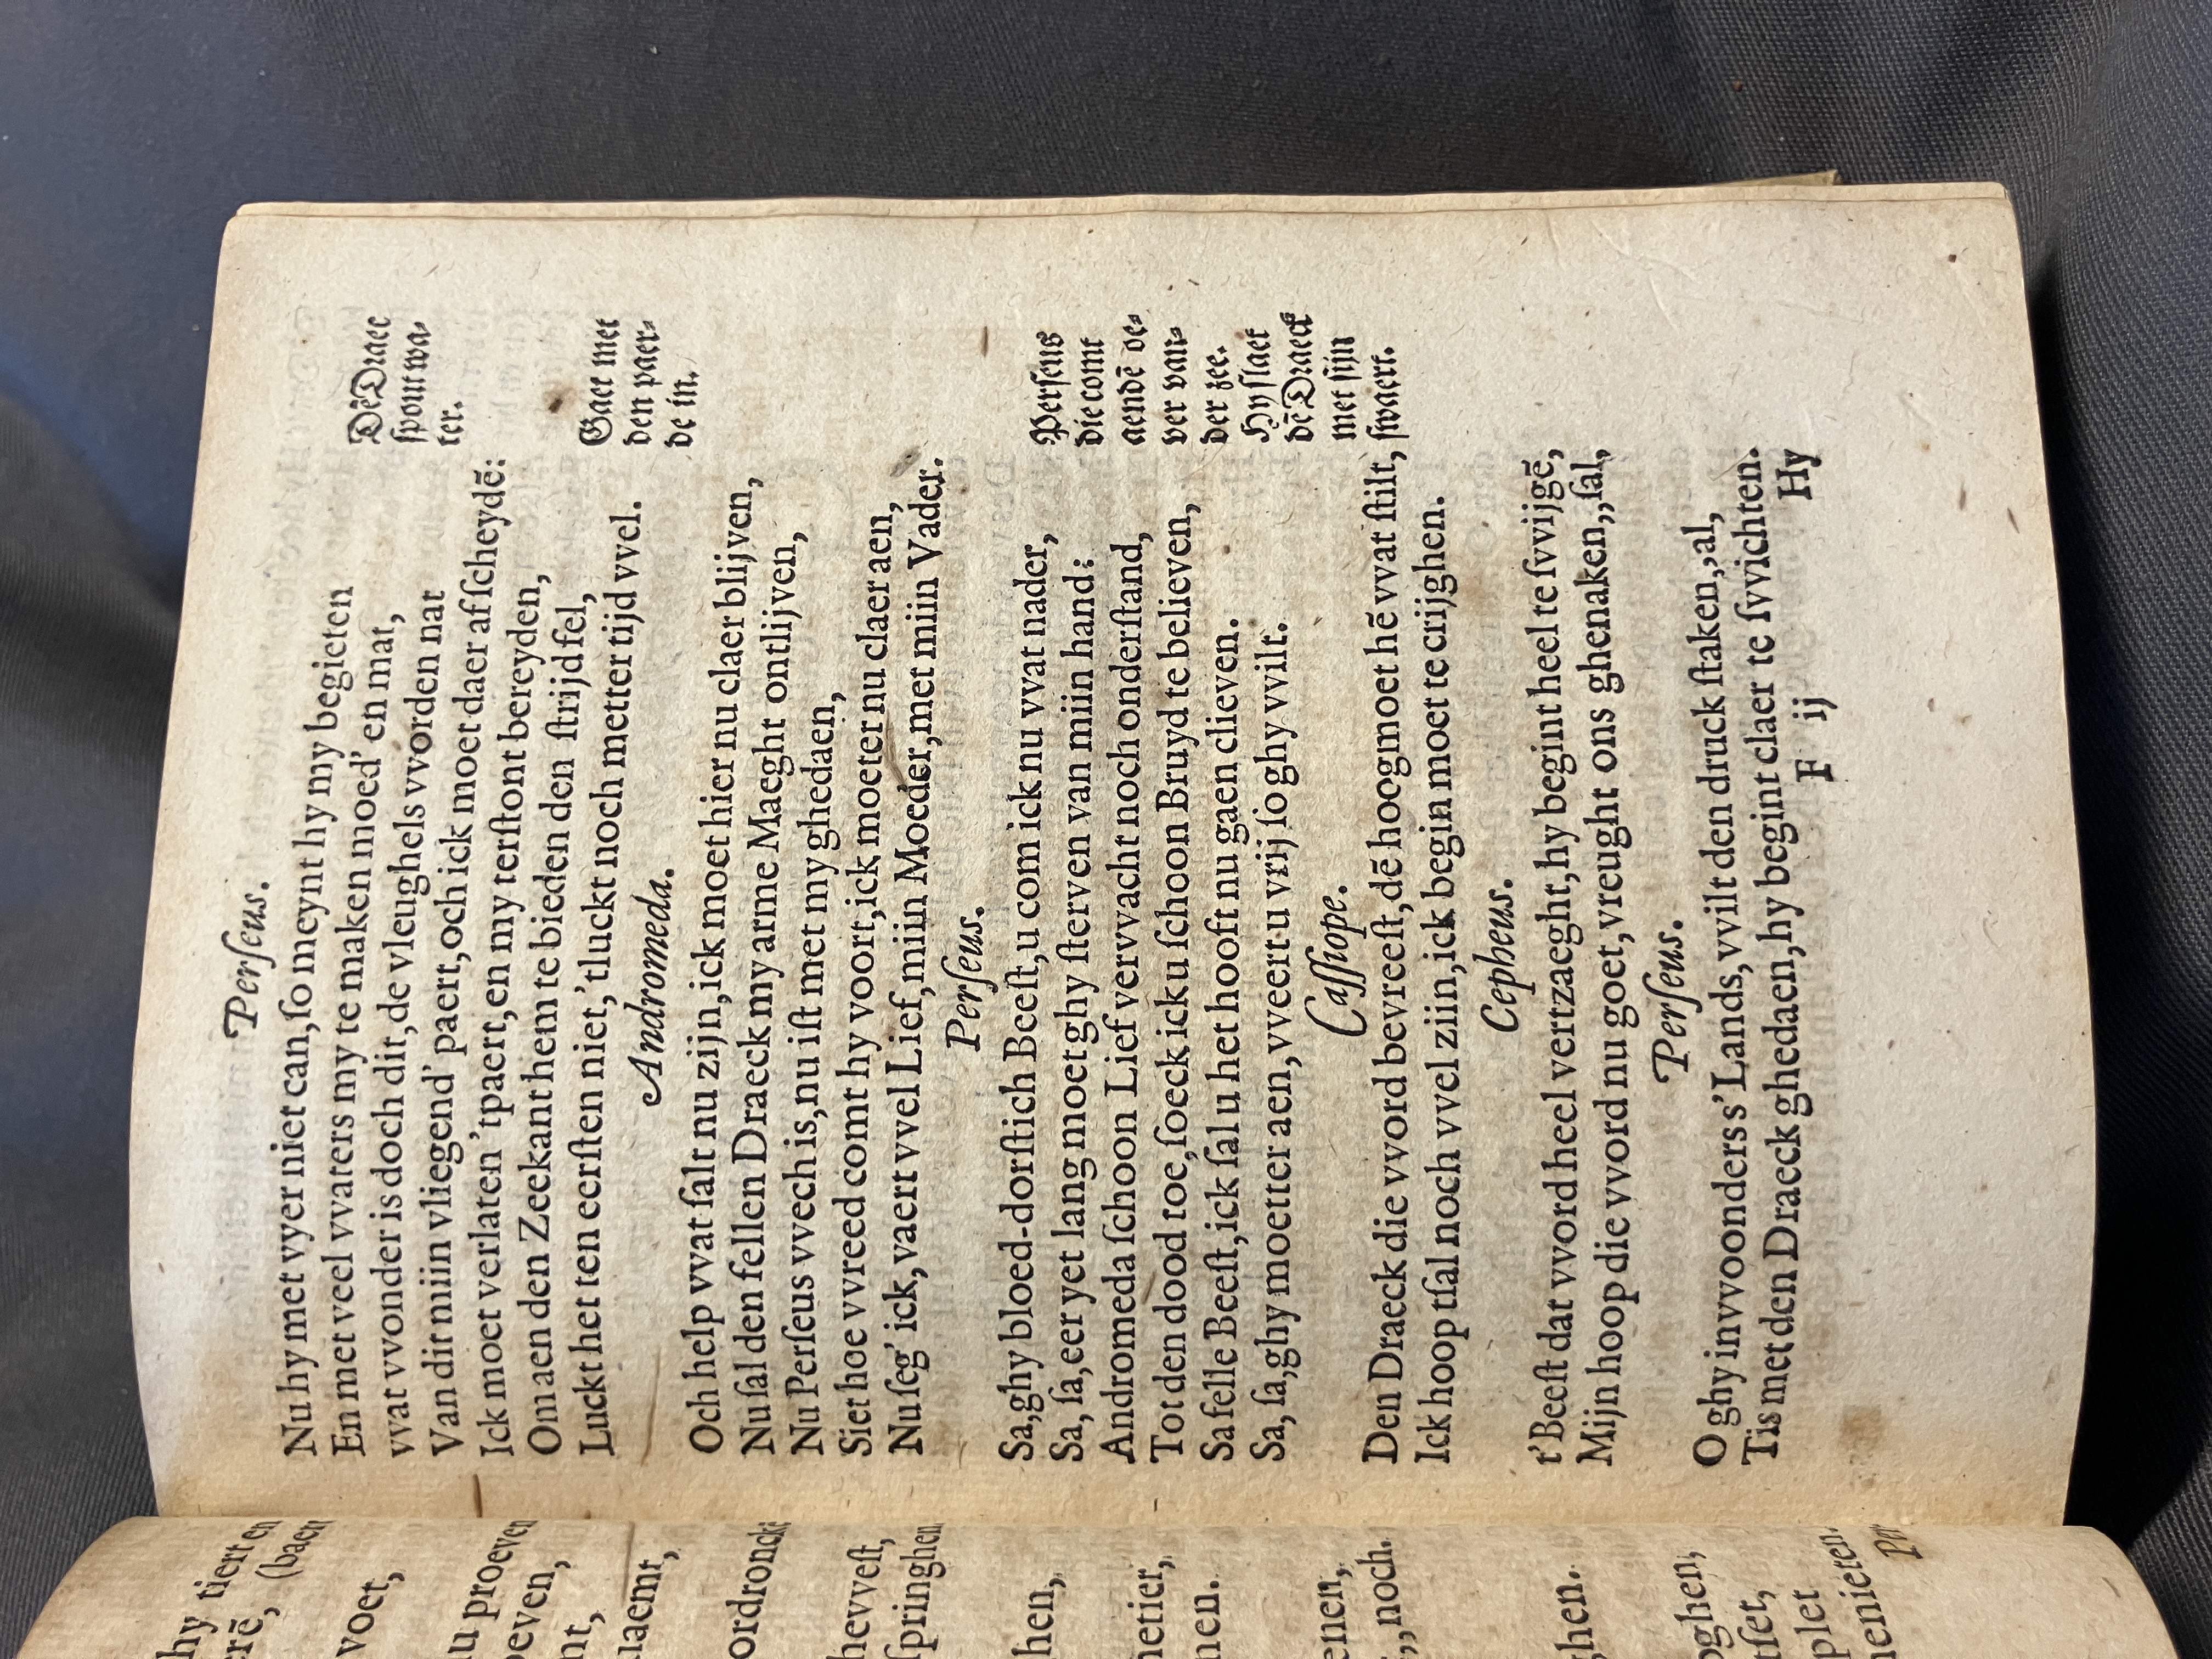 Perſeus.
Nu hy met vyer niet can, ſo meynt hy my begieten
En met veel vvaters my te maken moed' en mat,
vvat vvonder is doch dit, de vleughels vvorden nat
Van dit miin vliegend' paert, och ick moet daer af ſcheydē:
Ick moet verlaten 'tpaert, en my terſtont bereyden,
Om aen den Zeekant hem te bieden den ſtrijd fel,
Luckt het ten eerſten niet, 'tluckt noch metter tijd vvel.
Dē Draec
ſpout wa-
ter.
Gaet met
den paer-
de in.
Andromeda.
Och help vvat ſalt nu zijn, ick moet hier nu claer blijven,
Nu ſal den fellen Draeck my arme Maeght ontlijven,
Nu Perſeus vvech is, nu iſt met my ghedaen,
Siet hoe vvreed comt hy voort, ick moeter nu claer aen,
Nu ſeg' ick, vaert vvel Lief, miin Moeder, met miin Vader.
Perſeus.
Sa, ghy bloed-dorſtich Beeſt, u com ick nu vvat nader,
Sa, ſa, eer yet lang moet ghy ſterven van miin hand:
Andromeda ſchoon Lief vervvacht noch onderſtand,
Tot den dood toe, ſoeck ick u ſchoon Bruyd te believen,
Sa felle Beeſt, ick ſal u het hooft nu gaen clieven.
Sa, ſa, ghy moetter aen, vveert u vrij ſo ghy vvilt.
Perſeus
die comt
aendē oe-
ver van-
der zee.
Hy ſlaet
dē Draeck
met ſijn
ſwaert.
Caſſiope.
Den Draeck die vvord bevreeſt, dē hoogmoet hē vvat ſtilt,
Ick hoop tſal noch vvel ziin, ick begin moet te crijghen.
Cepheus.
t'Beeſt dat vvord heel vertzaeght, hy begint heel te ſvvijgē,
Mijn hoop die vvord nu goet, vreught ons ghenaken,, ſal,
Perſeus.
O ghy invvoonders s'Lands, vvilt den druck ſtaken,, al,
Tis met den Draeck ghedaen, hy begint claer te ſvvichten.
F ij Hy
hy tiert en
erē, (baen
voet,
u proeven
oeven,
nt,
laemt,
ordroncke
hevveſt,
ſpringhen
hen,
netier,
nen.
enen,
,, noch.
ghen.
oghen,
tſet,
plet
nenieten.
Per